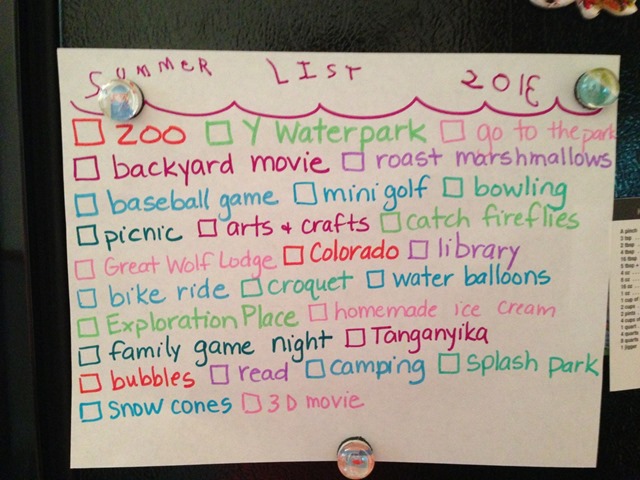 SUMMER LIST 2013
ZOO Y Waterpark go to the park
backyard movie roast marshmallows
baseball game mini golf bowling
picnic arts + crafts catch fireflies
Great Wolf Lodge Colorado library
bike ride croquet water balloons
Exploration Place homemade ice cream
family game night Tanganyika
bubbles read camping splash park
Snow cones 3D movie